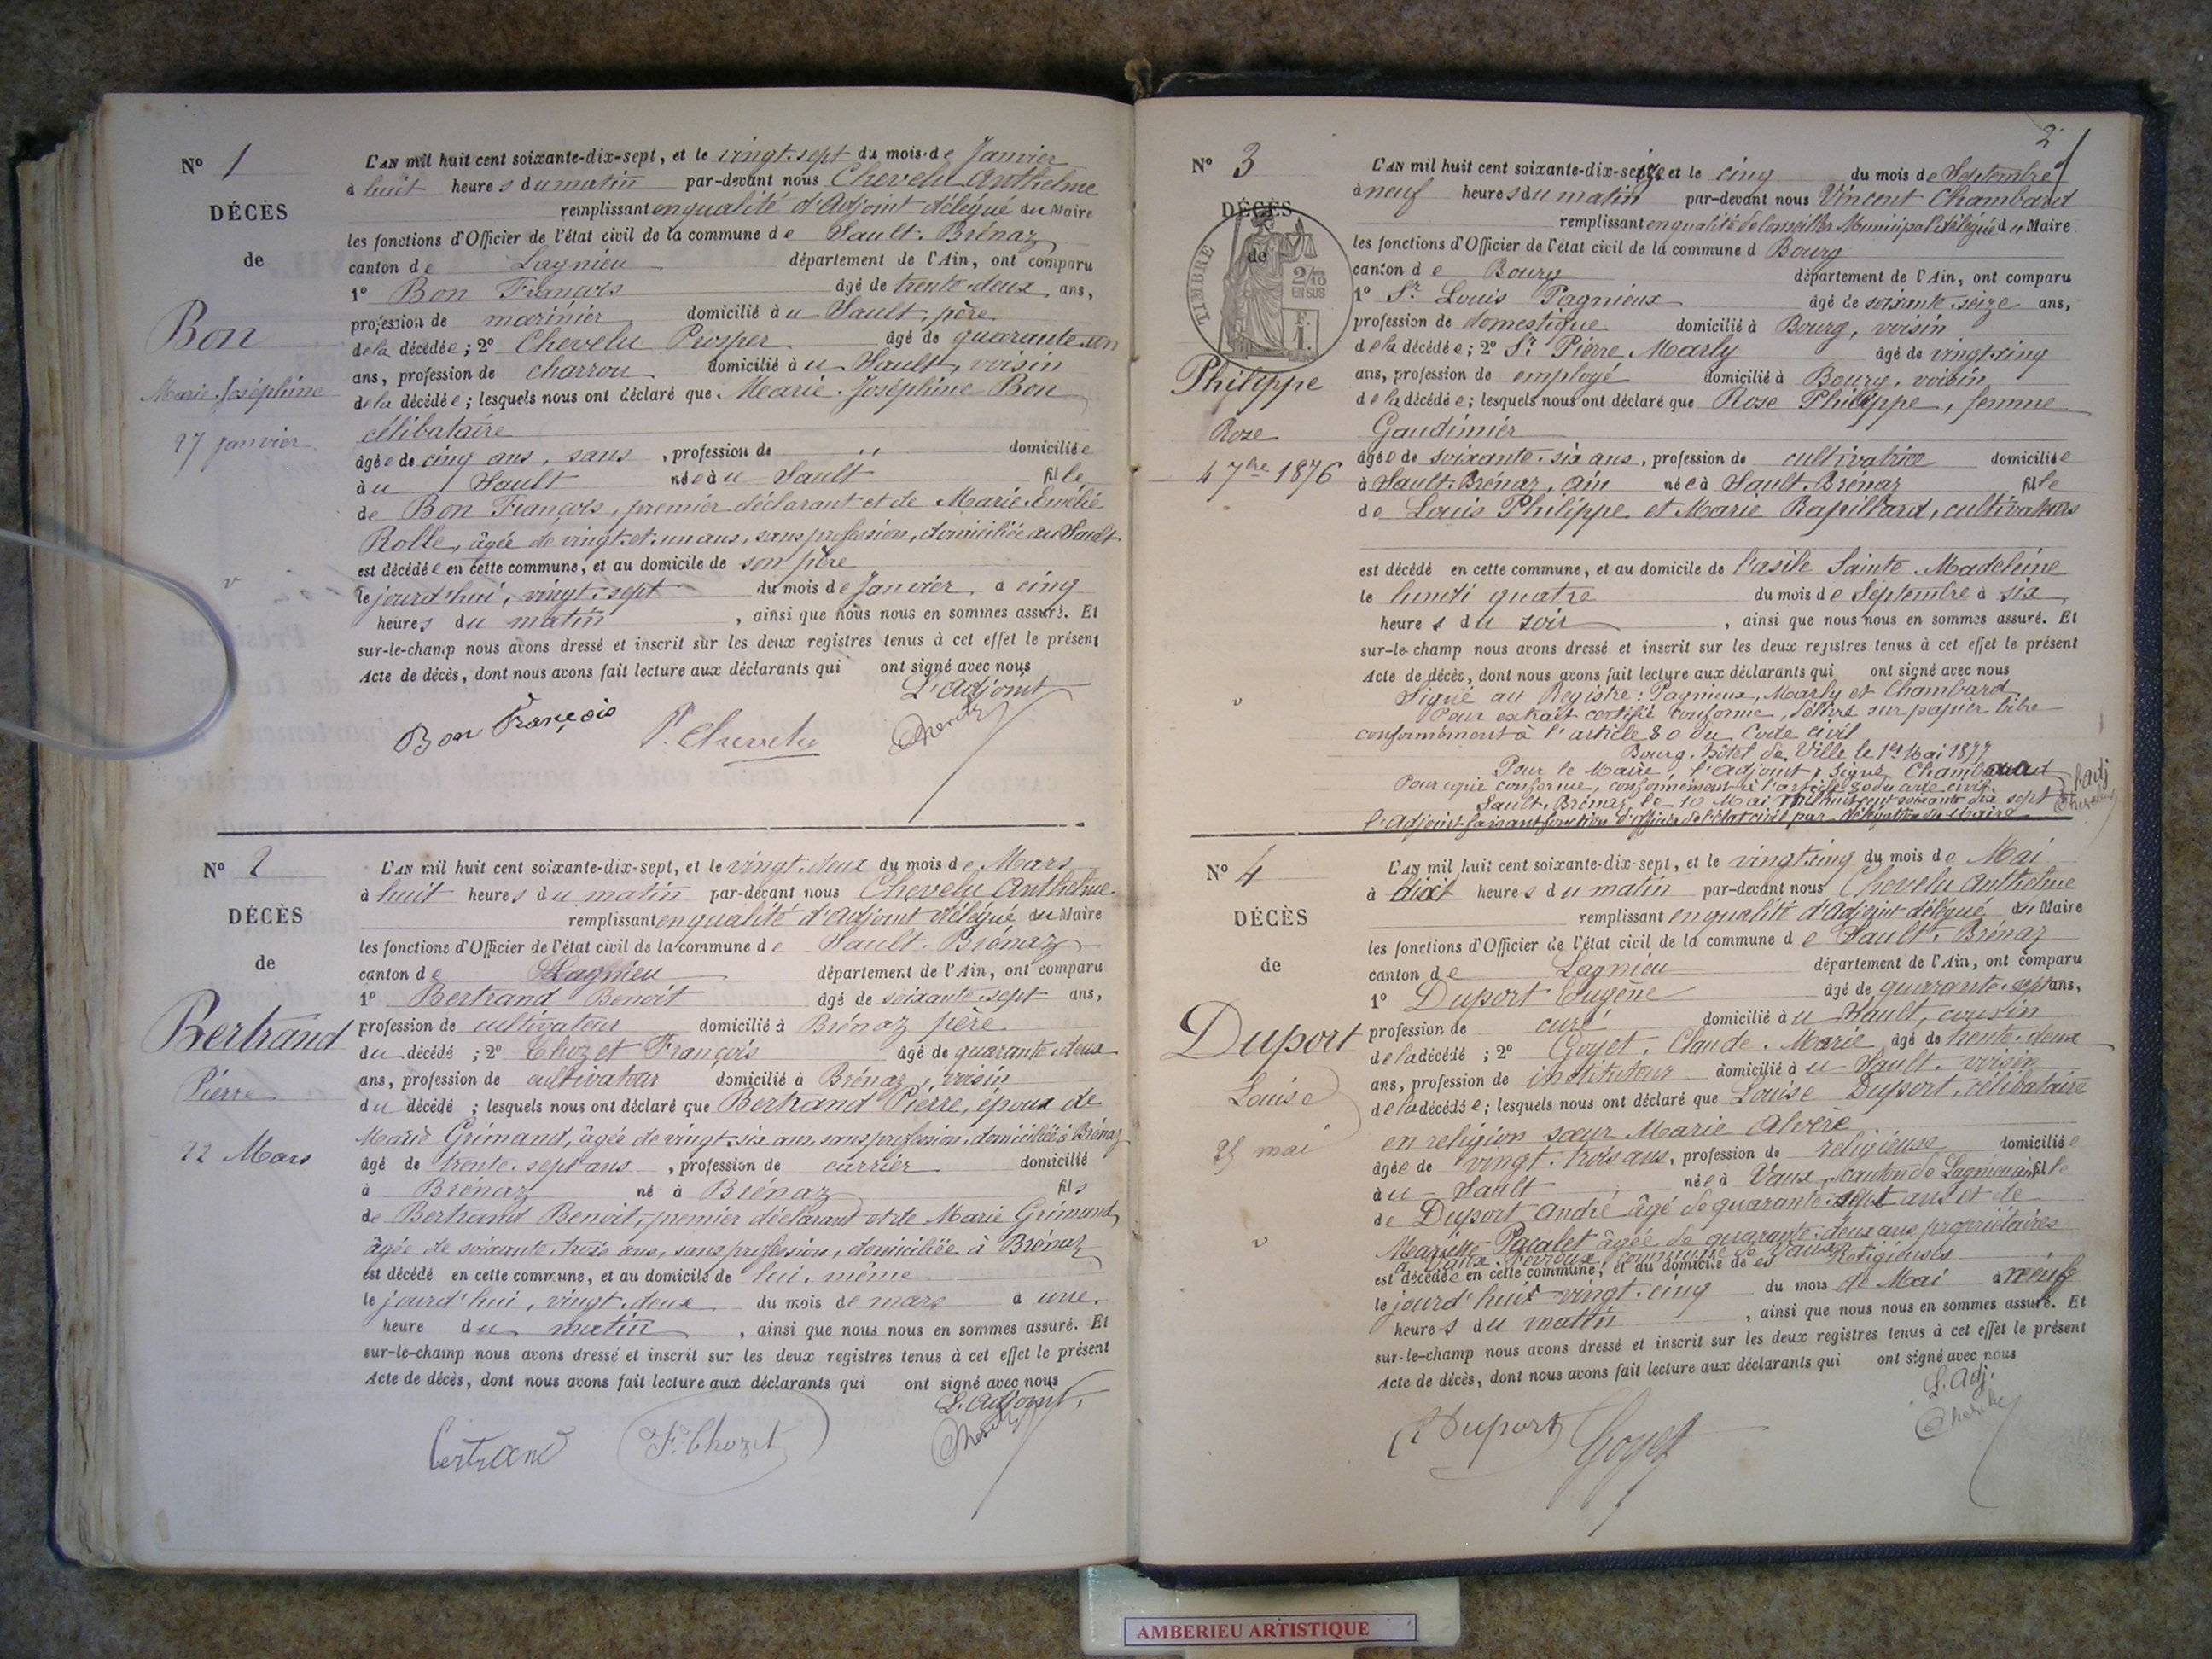 Nº 1
DÉCÈS
de
Bon
Marie Joséphine
27 Janvier
L'AN mil huit cent soixante-dix-sept, et le vingt-sept du mois de Janvier
à huit heures du matin par-devant nous Chevelu Anthelme
remplissant en qualité d'Adjoint délégué du Maire
les fonctions d'Officier de l'état civil de la commune de Sault-Brénaz
canton de Lagnieu département de l'Ain, ont comparu
1º Bon François âgé de trente-deux ans,
profession de marinier domicilié à u Sault, père
de la décédée; 2º Chevelu Prosper âgé de quarante-un
ans, profession de charron domicilié à u Sault, voisin
de la décédée; lesquels nous ont déclaré que Marie-Joséphine Bon
célibataire
âgée de cinq ans, sans, profession de ,, domiciliée
à u Sault née à u Sault fille
de Bon François, premier déclarant et de Marie-Emélie
Rolle, âgée de vingt-et-un ans, sans profession, domiciliée au Sault
est décédée en cette commune, et au domicile de son père
le jourd'hui, vingt-sept du mois de Janvier à cinq
heures du matin, ainsi que nous nous en sommes assuré. Et
sur-le-champ nous avons dressé et inscrit sur les deux registres tenus à cet effet le présent
Acte de décès, dont nous avons fait lecture aux déclarants qui ont signé avec nous
L'Adjoint
Bon François P. Chevelu
Nº 2
DÉCÈS
de
Bertrand
Pierre
22 Mars
L'AN mil huit cent soixante-dix-sept, et le vingt-deux du mois de Mars
à huit heures du matin par-devant nous Chevelu Anthelme
remplissant en qualité d'Adjoint délégué du Maire
les fonctions d'Officier de l'état civil de la commune de Sault-Brénaz
canton de Lagnieu département de l'Ain, ont comparu
1º Bertrand Benoit âgé de soixante-sept ans,
profession de cultivateur domicilié à Brénaz père
du décédé; 2º Chozet François âgé de quarante-deux
ans, profession de cultivateur domicilié à Brénaz, voisin
du décédé; lesquels nous ont déclaré que Bertrand Pierre, époux de
Marie Grimand, âgée de vingt-six ans, sans profession, domiciliée à Brénaz
âgé de trente-sept ans, profession de carrier domicilié
à Brénaz né à Brénaz fils
de Bertrand Benoit, premier déclarant et de Marie Grimand,
âgée de soixante-trois ans, sans profession, domiciliée à Brénaz
est décédé en cette commune, et au domicile de lui-même
le jourd'hui, vingt-deux du mois de mars à une
heure du matin, ainsi que nous nous en sommes assuré. Et
sur-le-champ nous avons dressé et inscrit sur les deux registres tenus à cet effet le présent
Acte de décès, dont nous avons fait lecture aux déclarants qui ont signé avec nous
L'Adjoint.
Bertrand F. Chozet
2
Nº 3
DÉCÈS
de
TIMBRE
2/10
EN SUS
F.
1.
Philippe
Rose
4 7bre 1876
L'AN mil huit cent soixante-dix-seize et le cinq du mois de Septembre
à neuf heures du matin par-devant nous Vincent Chambard
remplissant en qualité de Conseiller Municipal délégué du Maire
les fonctions d'Officier de l'état civil de la commune d Bourg
canton de Bourg département de l'Ain, ont comparu
1º Sr Louis Pagnieux âgé de soixante-seize ans,
profession de domestique domicilié à Bourg, voisin
de la décédée; 2º Sr Pierre Marly âgé de vingt-cinq
ans, profession de employé domicilié à Bourg, voisin
de la décédée; lesquels nous ont déclaré que Rose Philippe, femme
Gaudimier
âgée de soixante-six ans, profession de cultivatrice domiciliée
à Sault-Brénaz, Ain née à Sault-Brénaz fille
de Louis Philippe et Marie Rapillard, cultivateurs
est décédé en cette commune, et au domicile de l'asile Sainte Madeleine
le lundi quatre du mois de Septembre à six
heures du soir, ainsi que nous nous en sommes assuré. Et
sur-le-champ nous avons dressé et inscrit sur les deux registres tenus à cet effet le présent
Acte de décès, dont nous avons fait lecture aux déclarants qui ont signé avec nous
Signé au Registre: Pagnieux, Marly et Chambard.
Pour extrait certifié conforme, délivré sur papier libre
conformément à l'article 80 du Code civil
Bourg, hôtel de Ville le 1er Mai 1877
Pour le Maire, l'Adjoint, Signé, Chambard
Pour copie conforme, conformément à l'article 80 du code civil.
Sault-Brénaz, le 10 Mai mil huit cent soixante dix sept
l'Adjoint faisant fonction d'officier de l'état civil par délégation du Maire
L'adj
Nº 4
DÉCÈS
de
Duport
Louise
25 mai
L'AN mil huit cent soixante-dix-sept, et le vingt-cinq du mois de Mai
à dix heures du matin par-devant nous Chevelu Anthelme
remplissant en qualité d'Adjoint délégué du Maire
les fonctions d'Officier de l'état civil de la commune de Sault-Brénaz
canton de Lagnieu département de l'Ain, ont comparu
1º Duport Eugène âgé de quarante-sept ans,
profession de curé domicilié à u Sault, cousin
de la décédé; 2º Goyet Claude-Marie âgé de trente-deux
ans, profession de instituteur domicilié à u Sault, voisin
de la décédée; lesquels nous ont déclaré que Louise Duport, célibataire
en religion sœur Marie Alvère
âgée de vingt-trois ans, profession de religieuse domiciliée
à u Sault née à Vaux, canton de Lagnieu ain fille
de Duport André âgé de quarante-sept ans et de
Mariette Pacalet âgée de quarante-deux ans propriétaires
à Vaux-Févroux, commune de Vaux
est décédée en cette commune, et au domicile de es Religieuses
le jourd'hui vingt-cinq du mois de Mai à neuf
heures du matin, ainsi que nous nous en sommes assuré. Et
sur-le-champ nous avons dressé et inscrit sur les deux registres tenus à cet effet le présent
Acte de décès, dont nous avons fait lecture aux déclarants qui ont signé avec nous
L'Adj.
Duport Goyet
AMBERIEU ARTISTIQUE